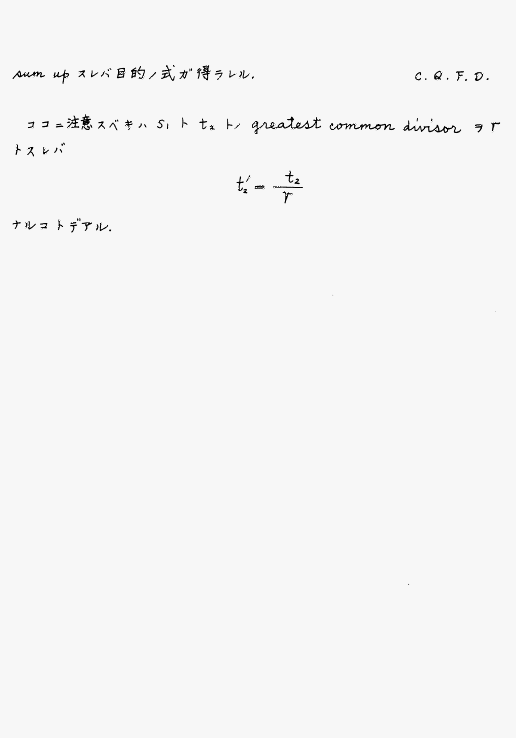 sum up スレバ目的ノ式ガ得ラレル. C. Q. F. D.
ココニ注意スベキハ S₁ ト t₂ トノ greatest common divisor ヲ r
トスレバ
t₂′ = t₂/r
ナルコトデアル.